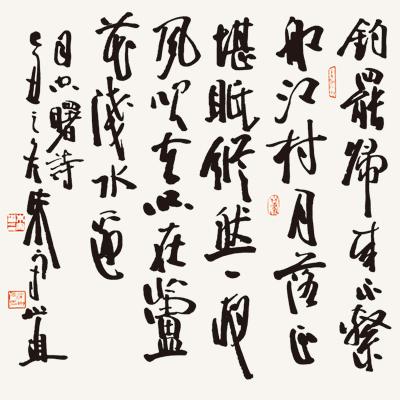 釣罷歸来不繫
船江村月落正
堪眠縱然一夜
風吹去只在蘆
花淺水邊
司空曙詩
丑之
朱